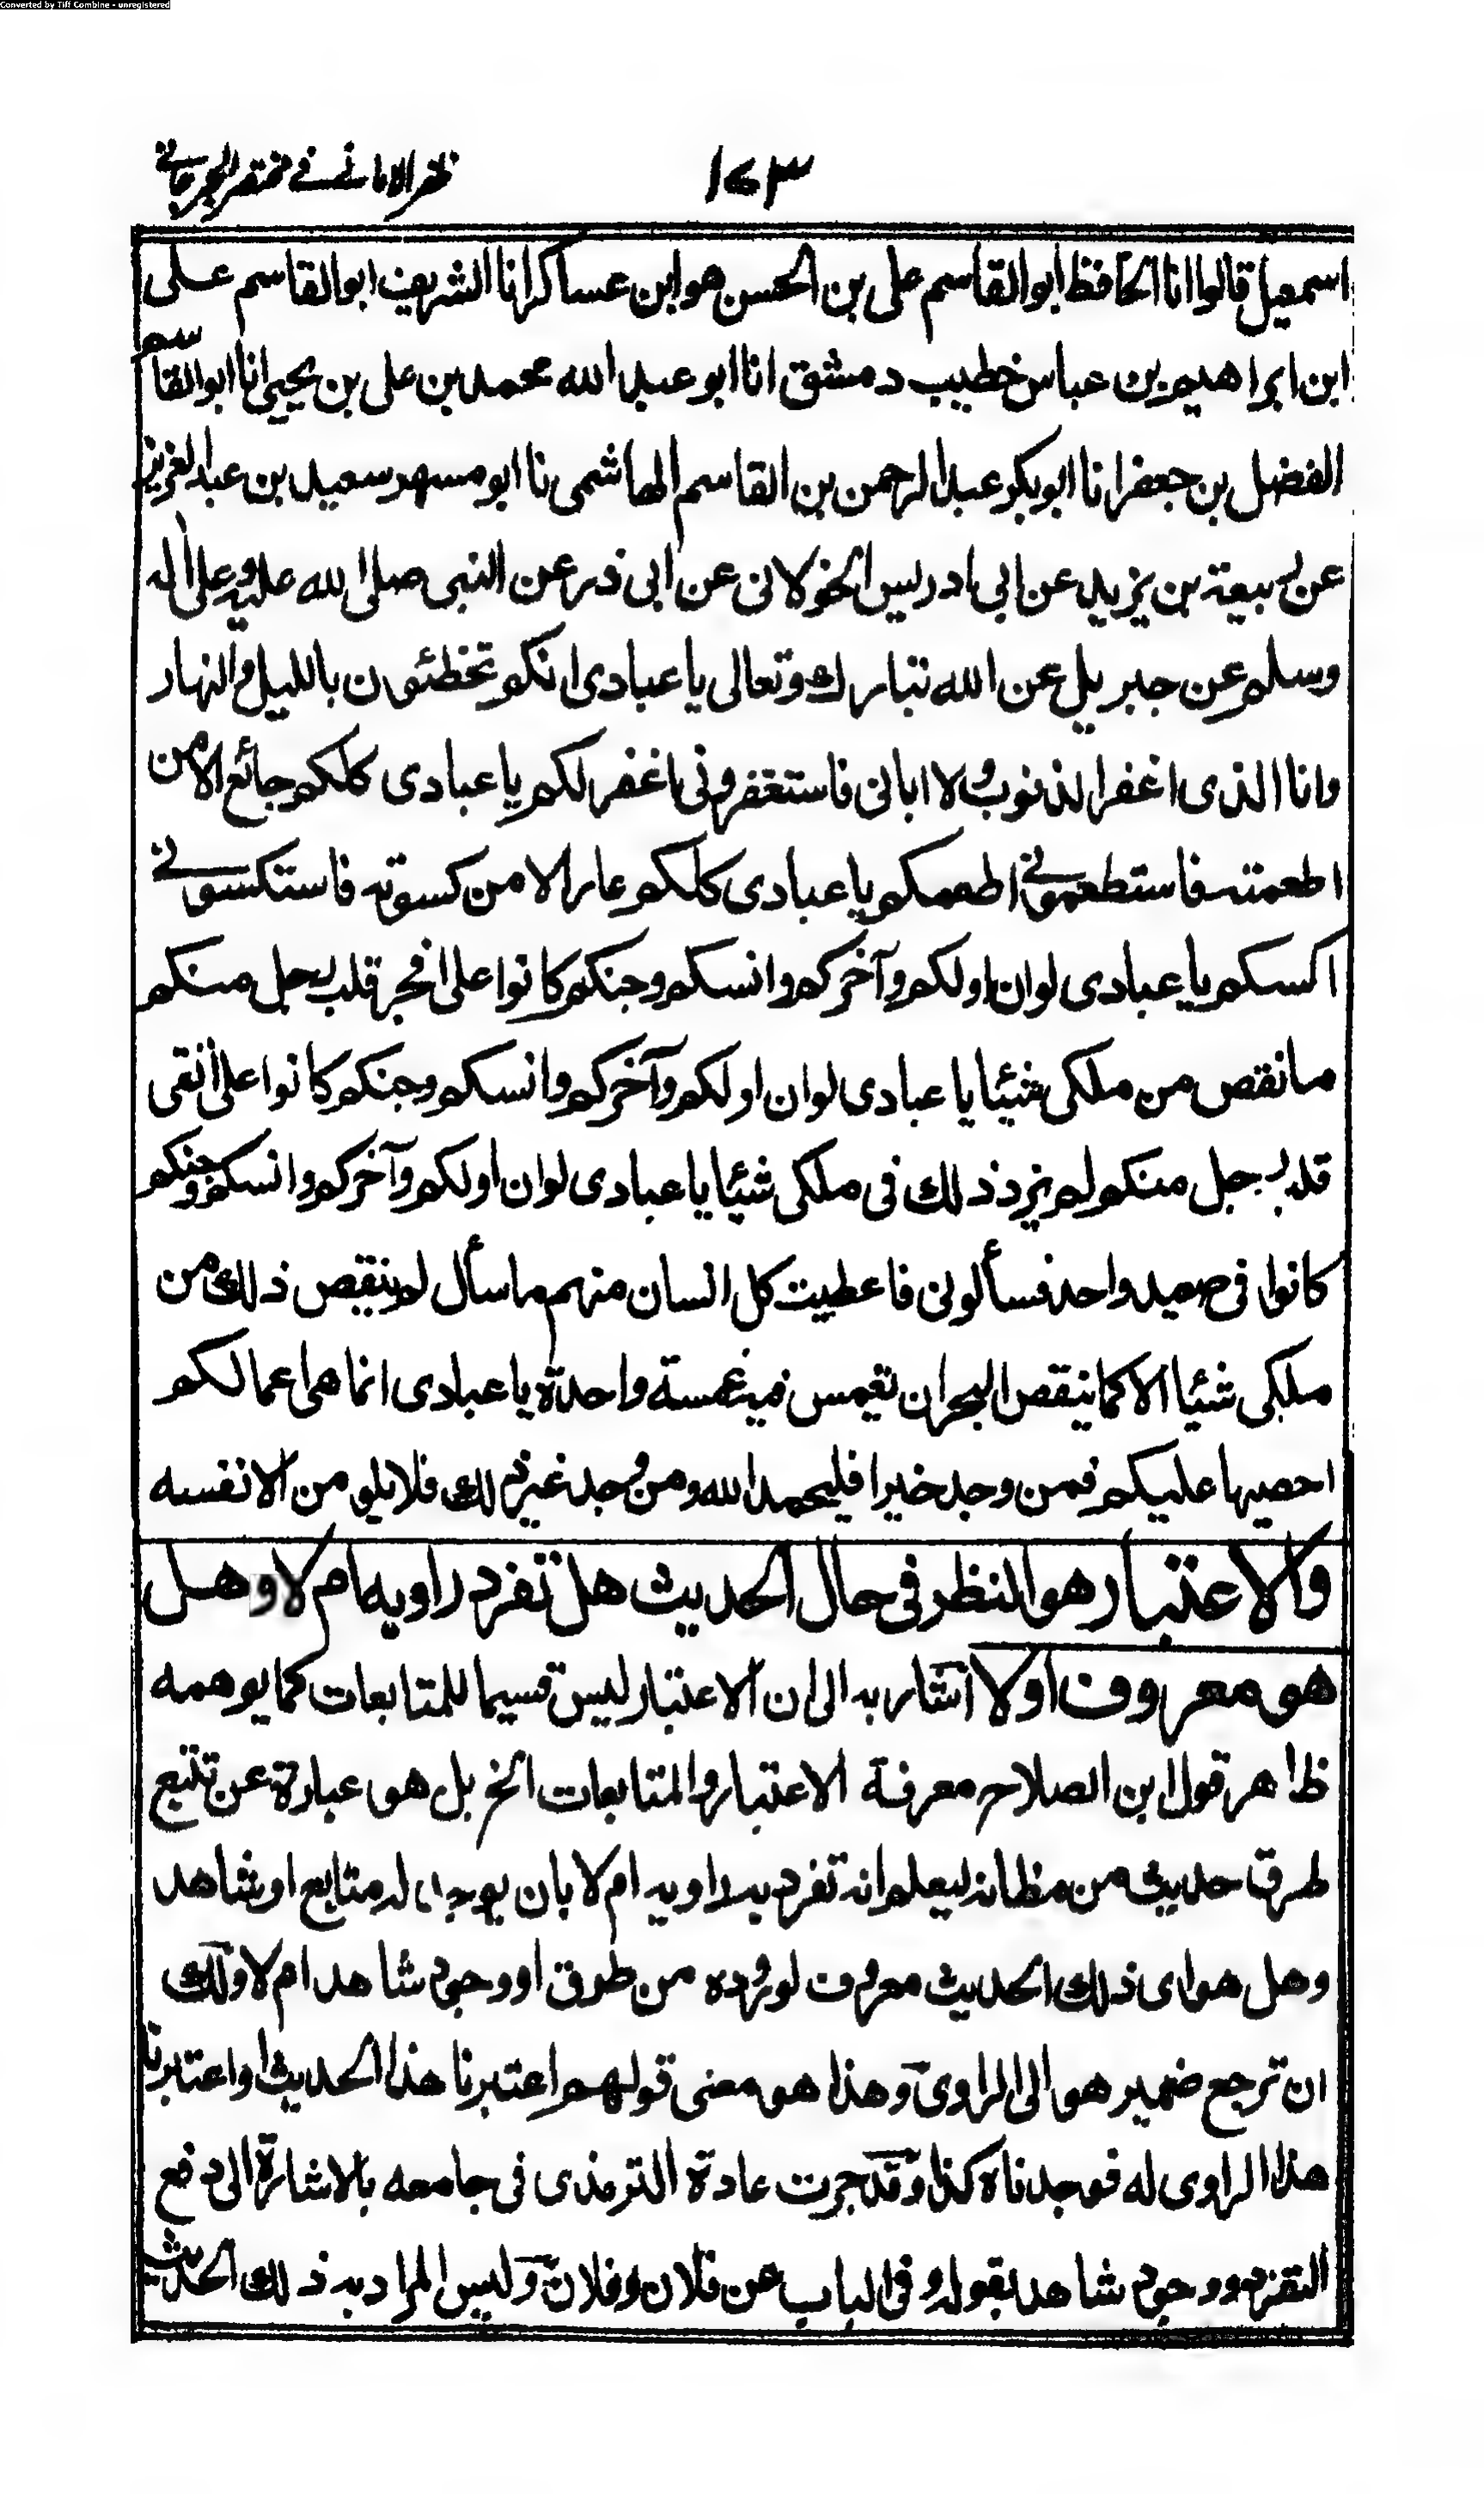 Converted by Tiff Combine - unregistered
ظفر الاماني في مختصر الجرجاني
١٤٣
اسمعيل قالوا انا الحافظ ابو القاسم علي بن الحسن هو ابن عساكر انا الشريف ابو القاسم على
ابن ابراهيم بن عباس خطيب دمشق انا ابو عبد الله محمد بن على بن يحيى انا ابو القاسم
الفضل بن جعفر انا ابو بكر عبد الرحمن بن القاسم الهاشمى نا ابو مسهر سعيد بن عبد العزيز
عن ربيعة بن يزيد عن ابي ادريس الخولانى عن ابى ذر عن النبى صلى الله عليه وعلى اله
وسلم عن جبريل عن الله تبارك وتعالى يا عبادى انكم تخطئون بالليل والنهار
وانا الذى اغفر الذنوب ولا ابالى فاستغفرونى اغفر لكم يا عبادى كلكم جائع الا من
اطعمته فاستطعمونے اطعمكم يا عبادى كلكم عار الا من كسوته فاستكسونے
اكسكم يا عبادى لو ان اولكم وآخركم وانسكم وجنكم كانوا على افجر قلب رجل منكم
ما نقص من ملكى شيئا يا عبادى لو ان اولكم وآخركم وانسكم وجنكم كانوا على أتقى
قلب رجل منكم لم يزد ذلك فى ملكى شيئا يا عبادى لو ان اولكم وآخركم وانسكم وجنكم
كانوا فى صعيد واحد فسألونى فاعطيت كل انسان منهم ما سأل لم ينقص ذلك من
ملكى شئيا الا كما ينقص البحر ان تغمس فيه غمسة واحدة يا عبادى انما هى اعمالكم
احصيها عليكم فمن وجد خيرا فليحمد الله ومن وجد غير ذلك فلا يلو من الا نفسه
والاعتبار هو النظر فى حال الحديث هل تفرد راويه ام لا وهل
هو معروف اولا اشار به الى ان الاعتبار ليس قسيما للمتابعات كما يوهمه
ظاهر قول ابن الصلاح معرفة الاعتبار والمتابعات الخ بل هو عبارة عن تتبع
طرق حديث من مظانه ليعلم انه تفرد به راويه ام لا بان يوجد له متابع او شاهد
وهل هو اى ذلك الحديث معروف لوروده من طرق او وجود شاهد ام لا ولك
ان ترجع ضمير هو الى الراوى وهذا هو معنى قولهم اعتبرنا هذا الحديث واعتبرنا
هذا الراوى له فوجدناه كذا وقد جرت عادة الترمذى فى جامعه بالاشارة الى دفع
التفرد ووجود شاهد بقوله وفى الباب عن فلان وفلان وليس المراد به ذلك الحديث